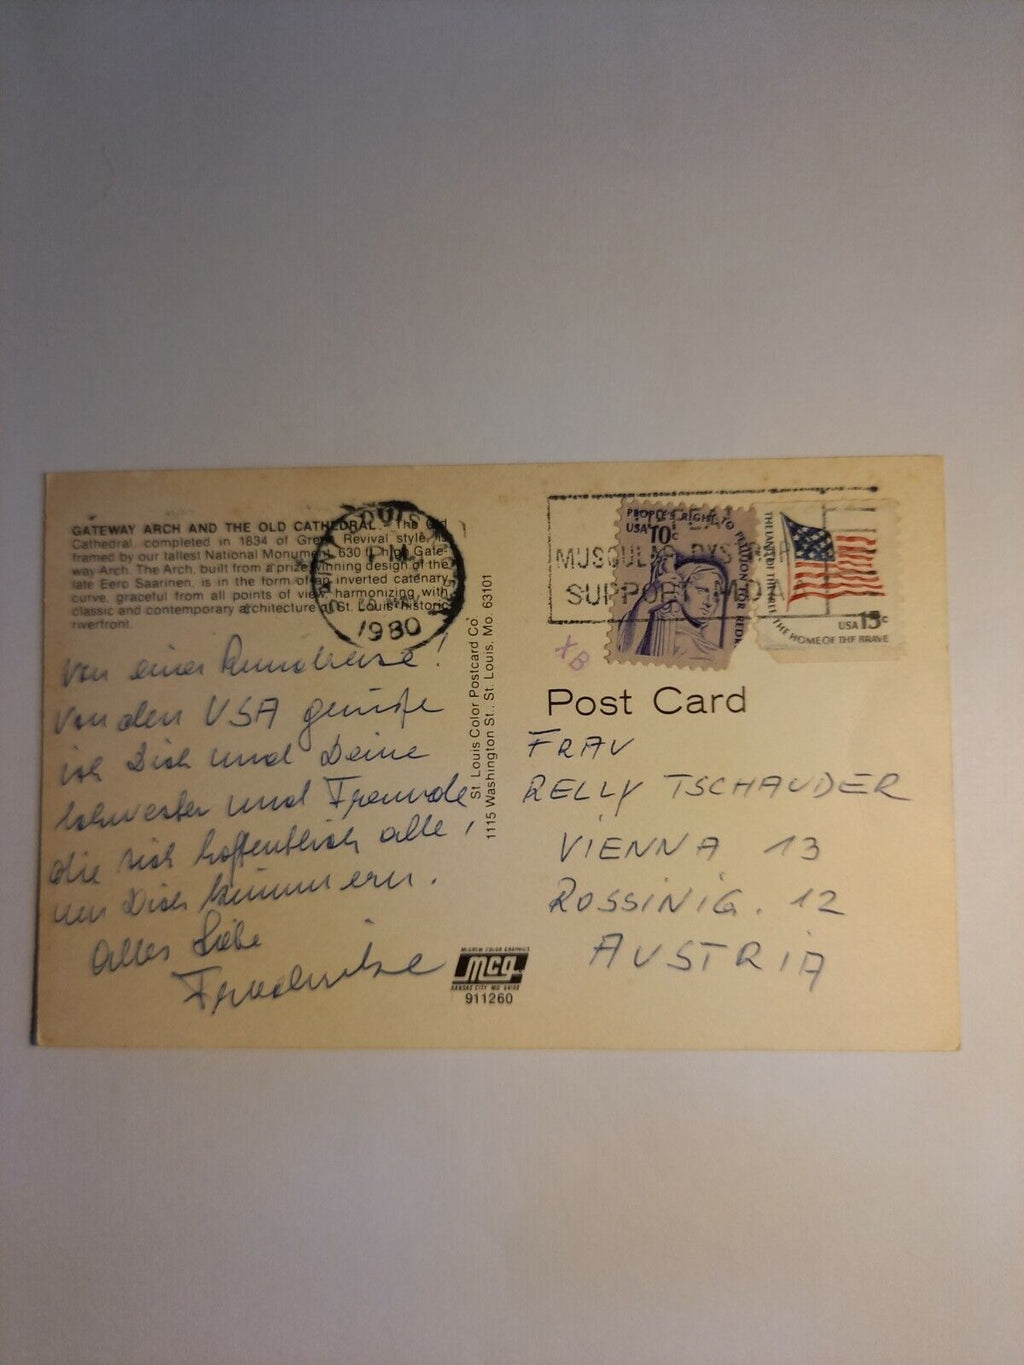 GATEWAY ARCH AND THE OLD CATHEDRAL - The Old
Cathedral completed in 1834 of Greek Revival style, is
framed by our tallest National Monument, 630 ft. high Gate-
way Arch. The Arch, built from a prize winning design of the
late Eero Saarinen, is in the form of an inverted catenary
curve, graceful from all points of view, harmonizing with
classic and contemporary architecture of St. Louis historic
riverfront.
1980
Von einer Rundreise!
Von den USA grüße
ich Dich und Deine
Schwester und Freunde,
die sich hoffentlich alle
um Dich kümmern.
Alles Liebe
St. Louis Color Postcard Co.
1115 Washington St., St. Louis, Mo. 63101
McGREW COLOR GRAPHICS
mcg
KANSAS CITY, MO
911260
MUSCULAR DYS
SUPPORT MDA
PEOPLE'S RIGHT TO PETITION FOR REDR
USA 10c
THE LAND OF THE FREE THE HOME OF THE BRAVE
USA 15c
XB
Post Card
FRAU
RELLY TSCHAUDER
VIENNA 13
ROSSINIG. 12
AUSTRIA